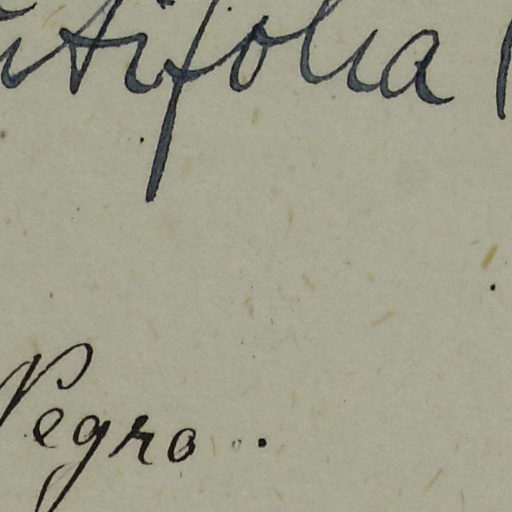 utifolia (
Negro.